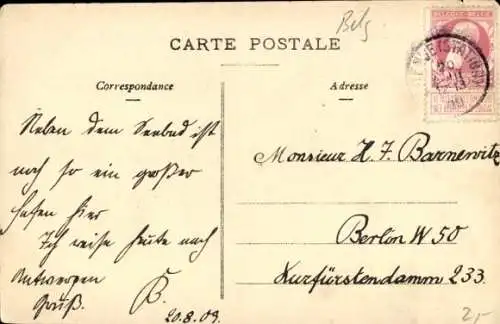 Belg
BELGIQUE BELGIË
CARTE POSTALE
Correspondance
Adresse
Neben dem Seebad ist
noch so ein großer
Hafen hier
Ich reise heute nach
Antwerpen
Gruß. B.
20.8.09
Monsieur H. F. Barnewitz
Berlin W 50
Kurfürstendamm 233.
2,-